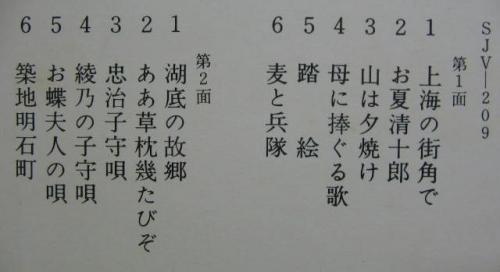 SJV—209
第1面
1 上海の街角で
2 お夏清十郎
3 山は夕焼け
4 母に捧ぐる歌
5 踏絵
6 麦と兵隊
第2面
1 湖底の故郷
2 ああ草枕幾たびぞ
3 忠治子守唄
4 綾乃の子守唄
5 お蝶夫人の唄
6 築地明石町